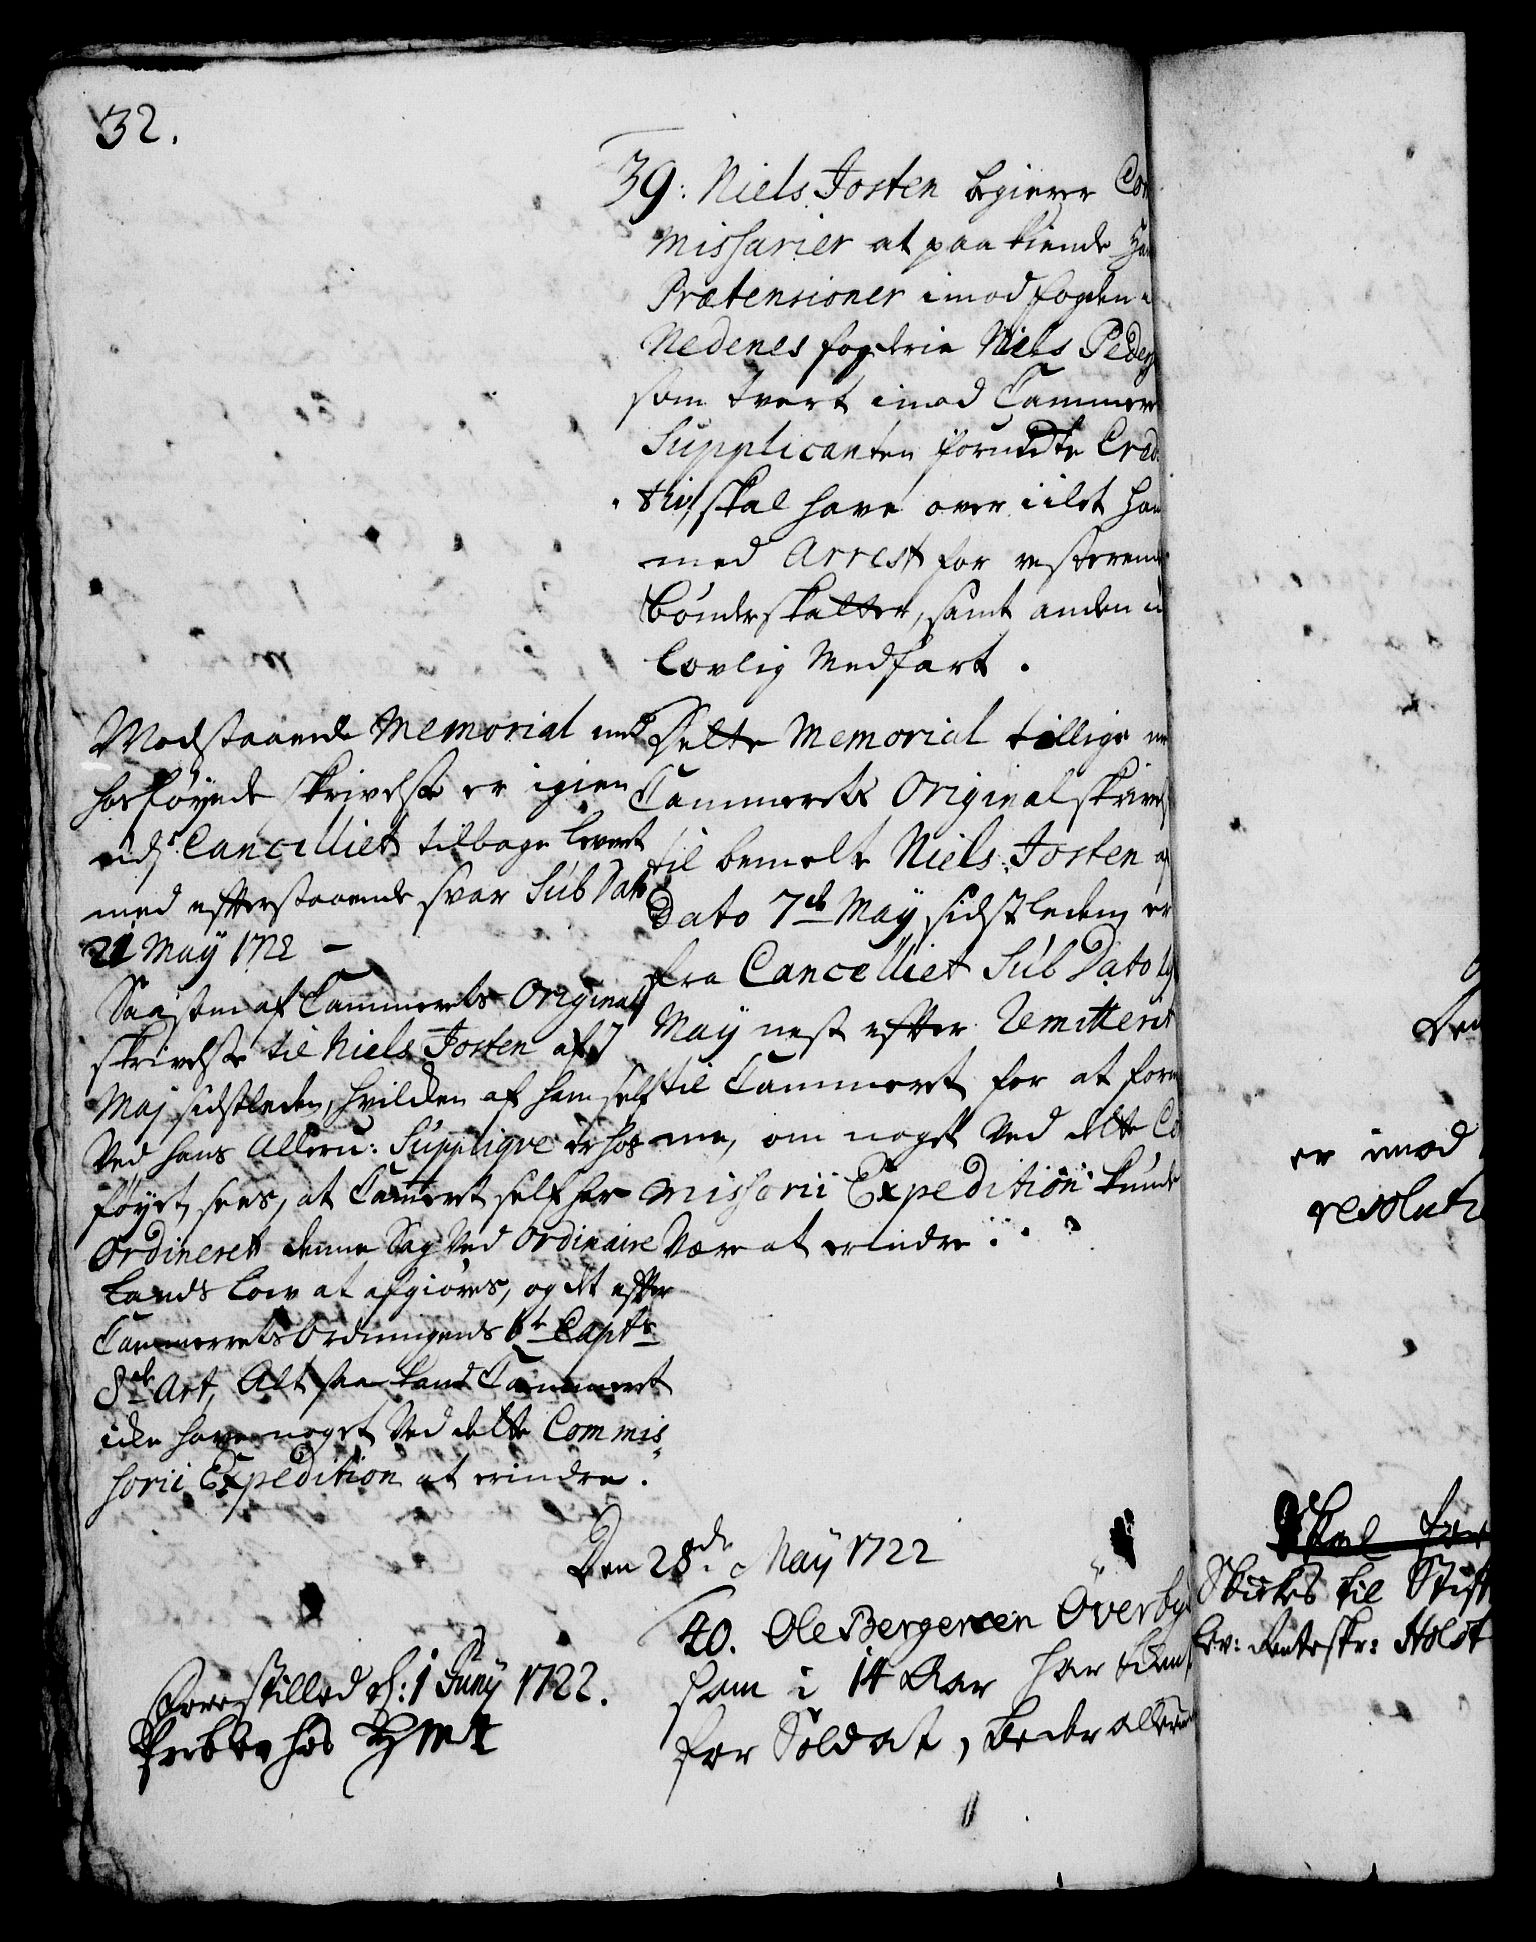 32.
39: Niels Josten begierer Com
missarier at paa kiende Hans
Prætensioner imod fogden i
Nedenes fogderie Niels Peders
som tvert imod Cammere
Supplicanten forundte Cred.
thi, skal have over iilet ham
med Arrest for resterende
bønder skatter, samt anden u
lovlig Medfart.
Modstaaende Memorial med
hosføyede skrivelse er igien
udj Cancelliet tilbage levert
med efterstaaende svar Sub Dato
21 May 1722 –
Saasom af Cammerets Original
skrivelse til Niels Josten af 7
Maj sidstleden, hvilken af ham self
ved hans Alleru: Supplique er hos
føyet, sees, at Cameret self har
Ordineret denne Sag ved Ordinaire
Lands Low at afgiøres, og det efter
Cammerets Ordningens 6te Capts
8de Art, Alt saa kand Cammeret
icke have noget ved dette Commis
sorii Expedition at erindre.
Dette Memorial tillige me
Cammerets Original skrivel
til bemelte Niels Josten af
Dato 7de May sidstleden er
fra Cancelliet Sub Dato
May nest efter Remitterit
til Cammeret for at forn
me, om noget ved dette Co
missorii Expedition kunde
være at erindre.
Den 28de May 1722
40. Ole Bergersen Överby
som i 14 Aar har tient
for Soldat, beder allerun
Forestilled d: 1 Juny 1722.
er imod
resolut
Skal for
Skickes til Stift
lev: Renteskr: Holst